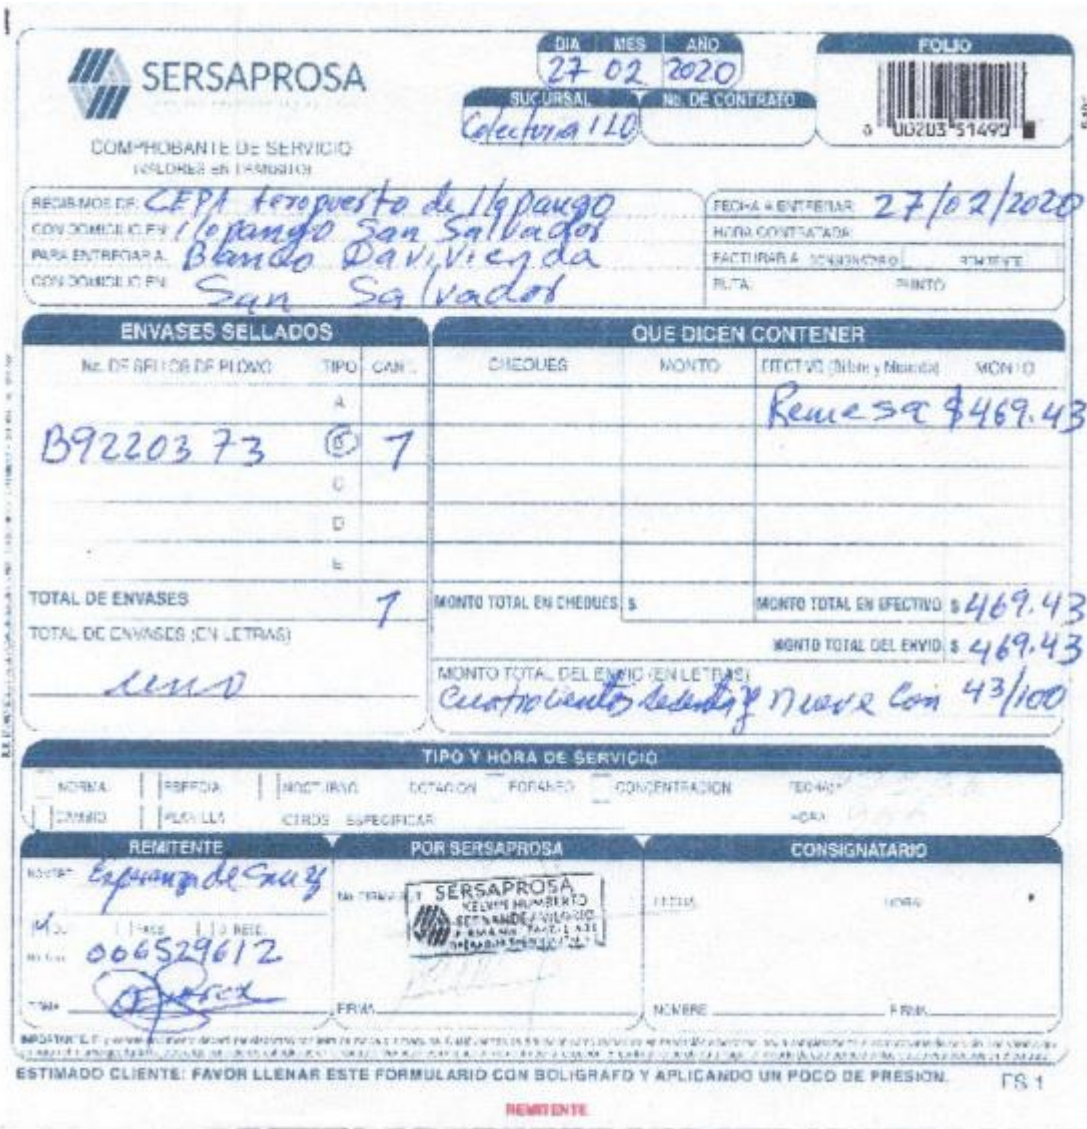 SERSAPROSA
COMPROBANTE DE SERVICIO
(VALORES EN TRANSITO)
DIA MES AÑO
27 02 2020
SUCURSAL No. DE CONTRATO
Colecturia ILO
FOLIO
RECIBIMOS DE: CEPA Aeropuerto de Ilopango
CON DOMICILIO EN: Ilopango San Salvador
PARA ENTREGAR A: Blanco Davivienda
CON DOMICILIO EN: San Salvador
FECHA A ENTREGAR: 27/02/2020
HORA CONTRATADA:
FACTURAR A: REMITENTE
RUTA: PUNTO
ENVASES SELLADOS
No. DE SELLOS DE PLOMO TIPO CANT.
A
B9220373 B 1
C
D
E
TOTAL DE ENVASES 1
TOTAL DE ENVASES (EN LETRAS)
uno
QUE DICEN CONTENER
CHEQUES MONTO EFECTIVO (Billete y Moneda) MONTO
Remesa $469.43
MONTO TOTAL EN CHEQUES $ MONTO TOTAL EN EFECTIVO $ 469.43
MONTO TOTAL DEL ENVIO $ 469.43
MONTO TOTAL DEL ENVIO (EN LETRAS)
Cuatrocientos sesenta y nueve con 43/100
TIPO Y HORA DE SERVICIO
NORMAL NOCTURNO DOTACION FORANEO CONCENTRACION FECHA
CAMBIO PLANILLA OTROS ESPECIFICAR HORA
REMITENTE
NOMBRE Esperanza de Cruz
006529612
FIRMA
POR SERSAPROSA
SERSAPROSA
KELVIN HUMBERTO
FIRMA
CONSIGNATARIO
FECHA HORA
NOMBRE FIRMA
ESTIMADO CLIENTE: FAVOR LLENAR ESTE FORMULARIO CON BOLIGRAFO Y APLICANDO UN POCO DE PRESION.
FS 1
REMITENTE